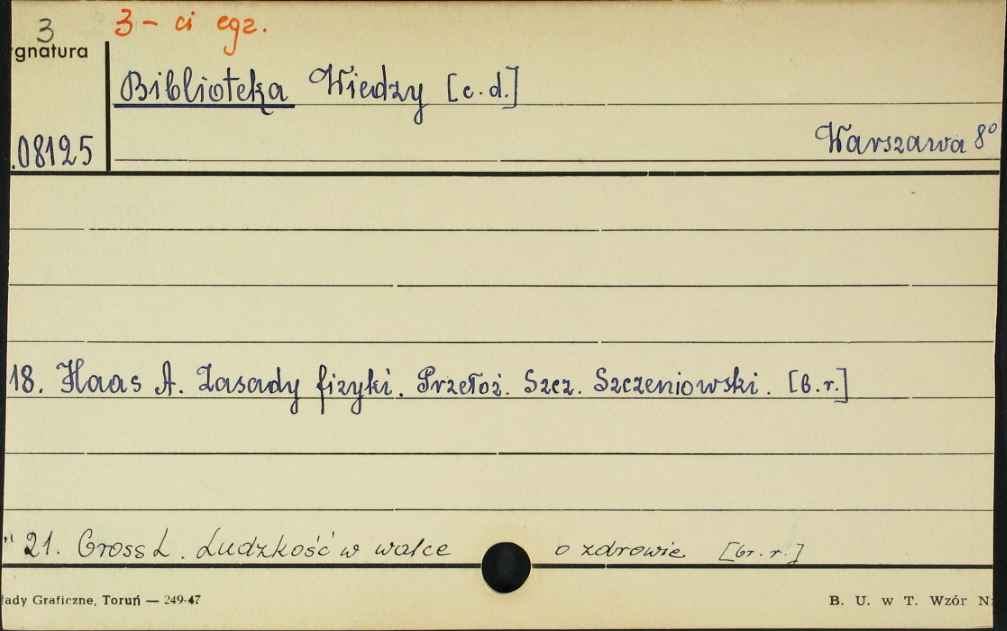 3 3-ci egz.
gnatura
Biblioteka Wiedzy [c.d.]
.08125 Warszawa 8°
18. Haas A. Zasady fizyki. Przełoż. Szcz. Szczeniowski. [b.r.]
" 21. Gross L. Ludzkość w walce o zdrowie [br.r.]
łady Graficzne, Toruń — 249-47 B. U. w T. Wzór N